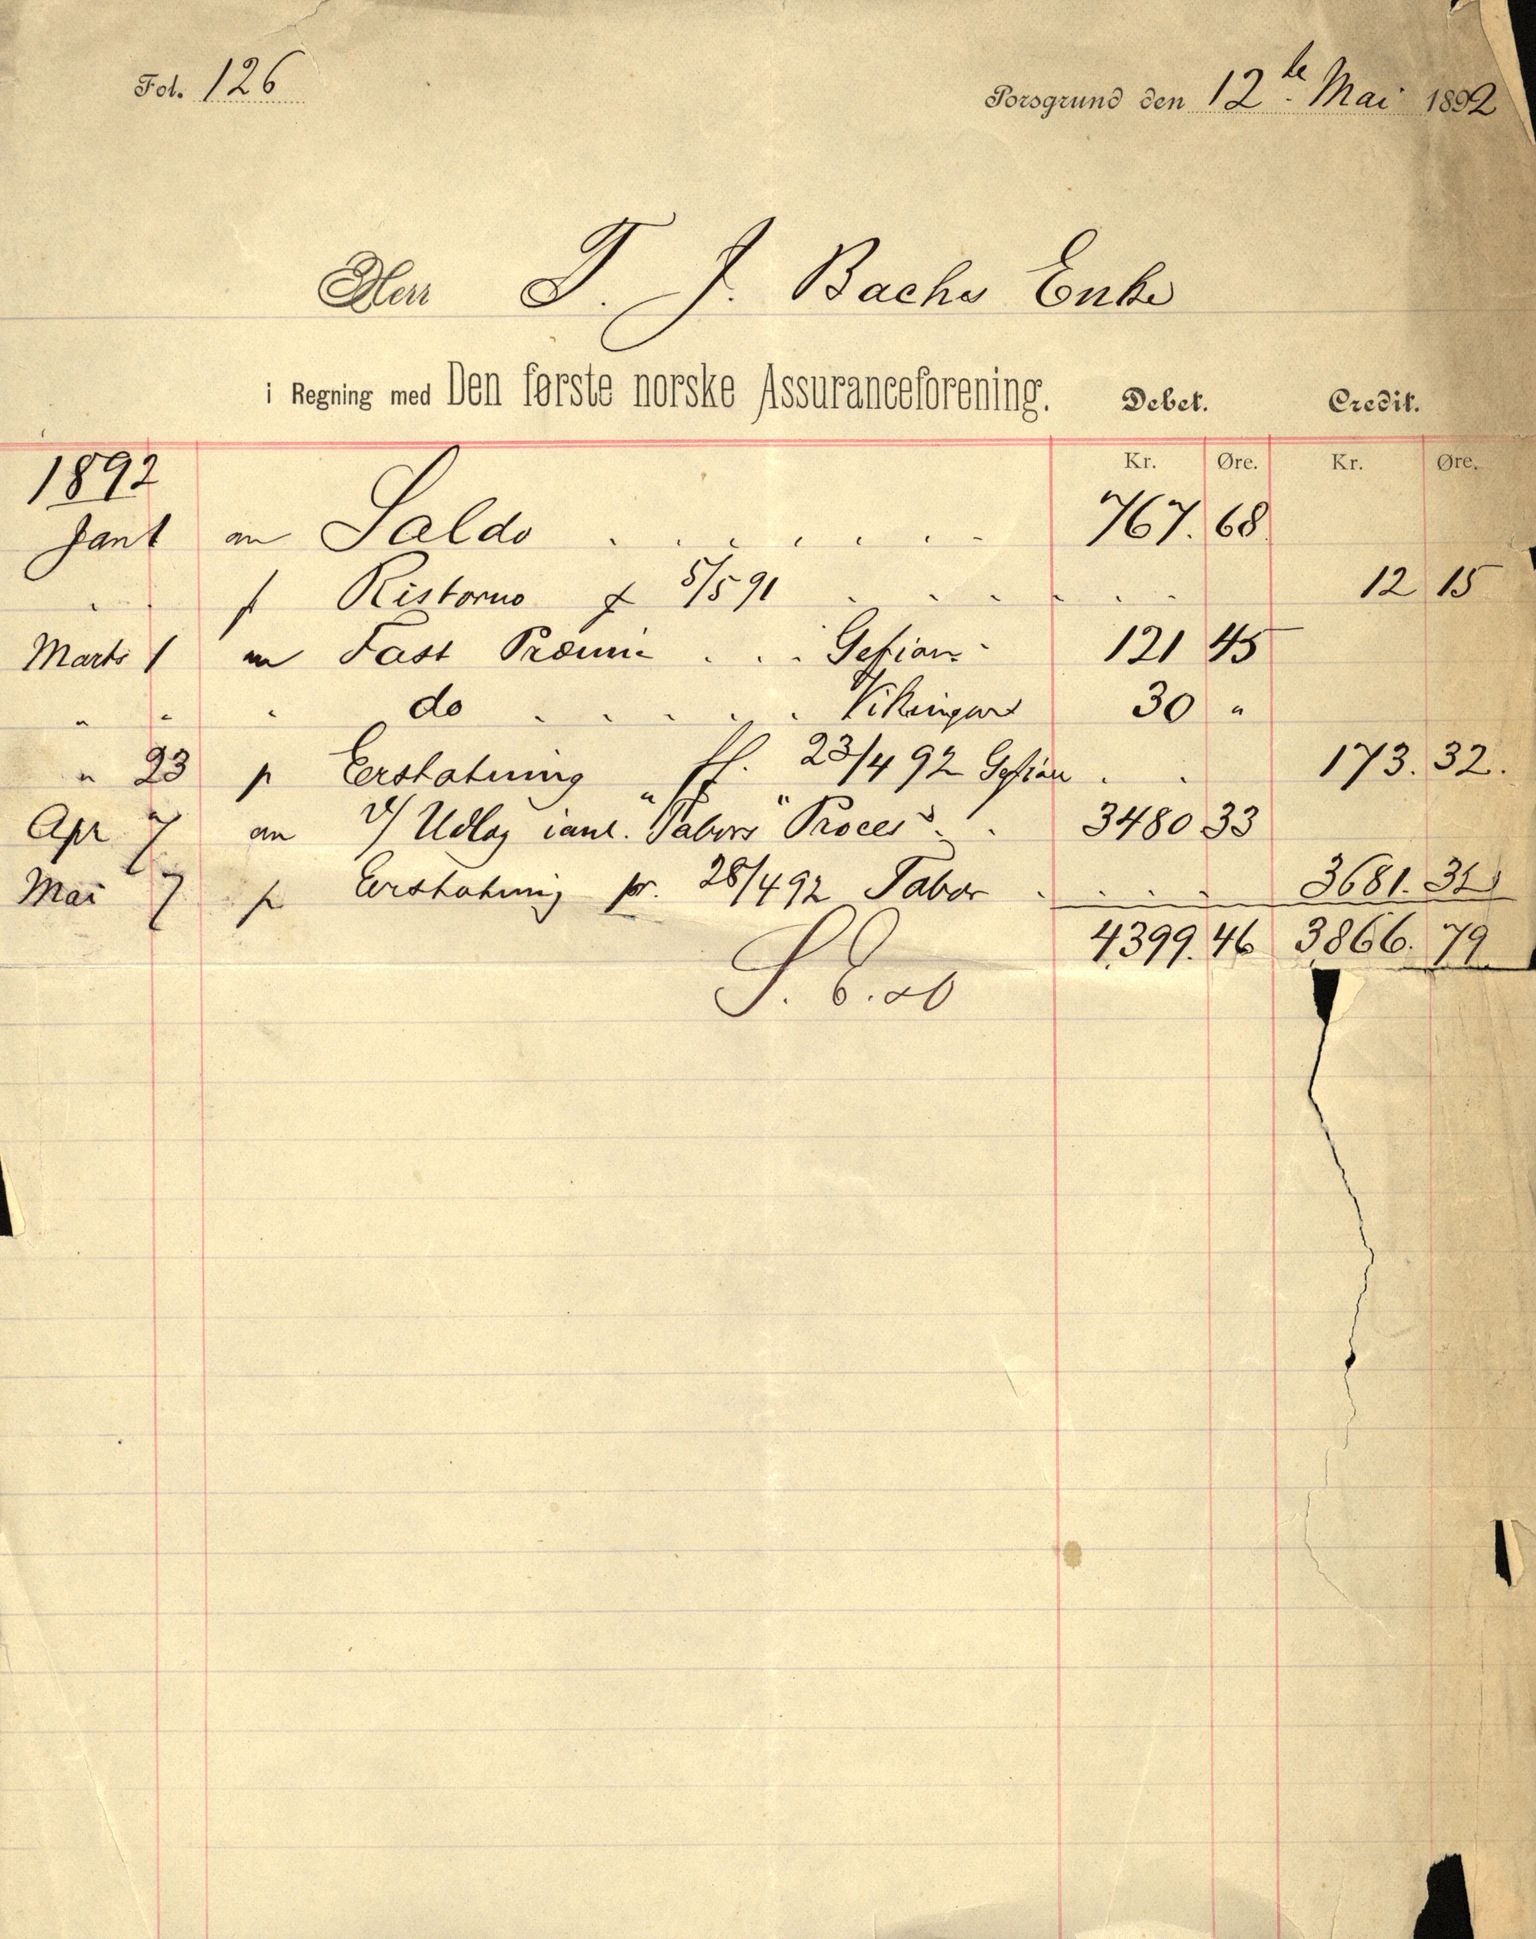 Fol. 126
Porsgrund den 12te Mai 1892
Herr T. J. Bachs Enke
i Regning med Den første norske Assuranceforening. Debet. Credit.
Kr. Øre. Kr. Øre.
1892
Jan 1 an Saldo . . . . . . 767. 68
" " p Ristorno 5/5 91 . . . . . . 12 15
Marts 1 an Fast Præmie . . . Gefion 121 45
" " " do . . . . . Vikingen 30 "
" 23 p Erstatning ff. 23/4 92 Gefion . . 173. 32.
Apr 7 an v/ Udlæg ianl. "Tabors" Proces . . 3480 33
Mai 7 p Erstatning pr. 28/4 92 Tabor . . . . 3681. 32
4399. 46 3866. 79
S. E. &